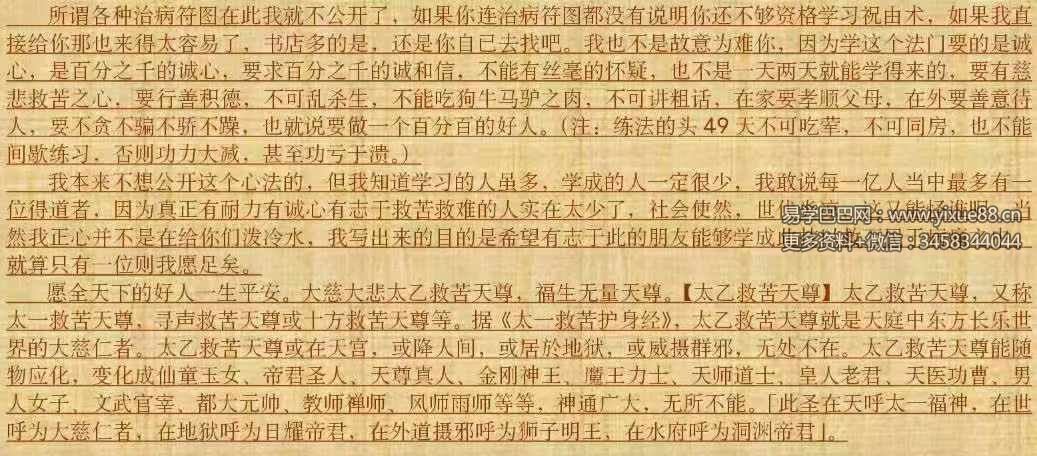 所谓各种治病符图在此我就不公开了，如果你连治病符图都没有说明你还不够资格学习祝由术，如果我直
接给你那也来得太容易了，书店多的是，还是你自已去找吧。我也不是故意为难你，因为学这个法门要的是诚
心，是百分之千的诚心，要求百分之千的诚和信，不能有丝毫的怀疑，也不是一天两天就能学得来的，要有慈
悲救苦之心，要行善积德，不可乱杀生，不能吃狗牛马驴之肉，不可讲粗话，在家要孝顺父母，在外要善意待
人，要不贪不骗不骄不躁，也就说要做一个百分百的好人。（注：练法的头49天不可吃荤，不可同房，也不能
间歇练习，否则功力大减，甚至功亏于溃。）
我本来不想公开这个心法的，但我知道学习的人虽多，学成的人一定很少，我敢说每一亿人当中最多有一
位得道者，因为真正有耐力有诚心有志于救苦救难的人实在太少了，社会使然，世
然我正心并不是在给你们泼冷水，我写出来的目的是希望有志于此的朋友能够学成
就算只有一位则我愿足矣。
易学巴巴网：www.yixue88.cn
更多资料+微信：3458344044
愿全天下的好人一生平安。大慈大悲太乙救苦天尊，福生无量天尊。【太乙救苦天尊】太乙救苦天尊，又称
太一救苦天尊，寻声救苦天尊或十方救苦天尊等。据《太一救苦护身经》，太乙救苦天尊就是天庭中东方长乐世
界的大慈仁者。太乙救苦天尊或在天宫，或降人间，或居於地狱，或威摄群邪，无处不在。太乙救苦天尊能随
物应化，变化成仙童玉女、帝君圣人、天尊真人、金刚神王、魔王力士、天师道士、皇人老君、天医功曹、男
人女子、文武官宰、都大元帅、教师禅师、风师雨师等等，神通广大，无所不能。「此圣在天呼太一福神，在世
呼为大慈仁者，在地狱呼为日耀帝君，在外道摄邪呼为狮子明王，在水府呼为洞渊帝君」。